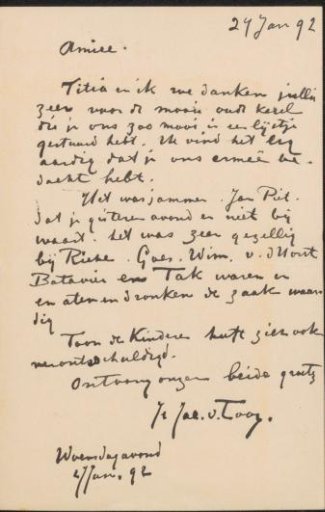 27 Jan 92
Amice.
Titia en ik we danken jullie
zeer voor de mooie oude kerel
die je ons zoo mooi in een lijstje
gestuurd hebt. Ik vind het erg
aardig dat je ons ermee be-
dacht hebt.
Het was jammer. Jan Piet.
dat je gisteren avond er niet bij
waart. het was zeer gezellig
bij Riese. Goes. Wim. v. d Horst
Batavier en Tak waren er
en aten en dronken de zaak waar
dig
Toon de Kinderen heeft zich ook
verontschuldigd.
Ontvang onzen beide groetz
Jac. v. Looy.
Woensdagavond
27 Jan. 92